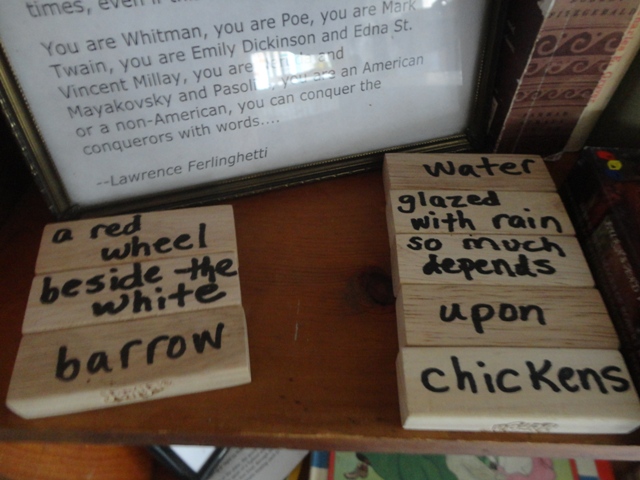 times, even if
You are Whitman, you are Poe, you are Mark
Twain, you are Emily Dickinson and Edna St.
Vincent Millay, you are and
Mayakovsky and you are an American
or a non-American, you can conquer the
conquerors with words....
--Lawrence Ferlinghetti
a red
wheel
beside the
white
barrow
water
glazed
with rain
so much
depends
upon
chickens